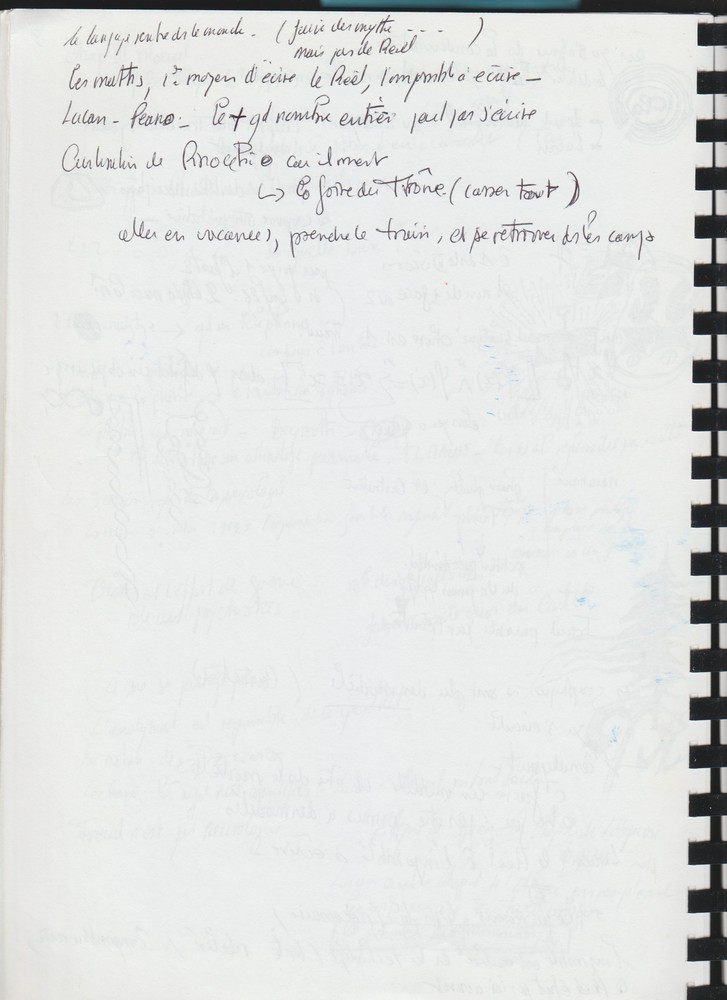 le langage rentre ds le monde - (faire des mythe - - - - )
mais pas de Réel
Les maths, 1er moyen d'écrire le Réel, l'impossible à écrire -
Lacan - Peano - le + gd nombre entier peut pas s'écrire
de Pinocchio car il ment
↳ la foire du Trône. (casser tout)
aller en vacances, prendre le train, et se retrouver ds les camps